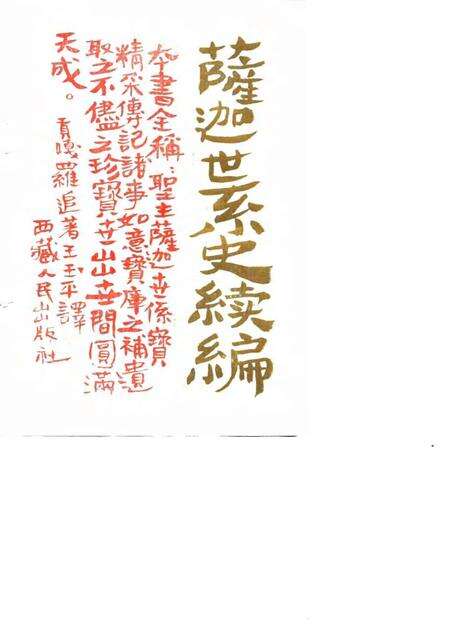 薩迦世系史續編
本書全稱:聖主薩迦世係寶
精采傳記諸事如意寶庫之補遺
取之不儘之珍寶世出世間圓滿
天成。
貢嘎羅追著王玉平譯
西藏人民出版社